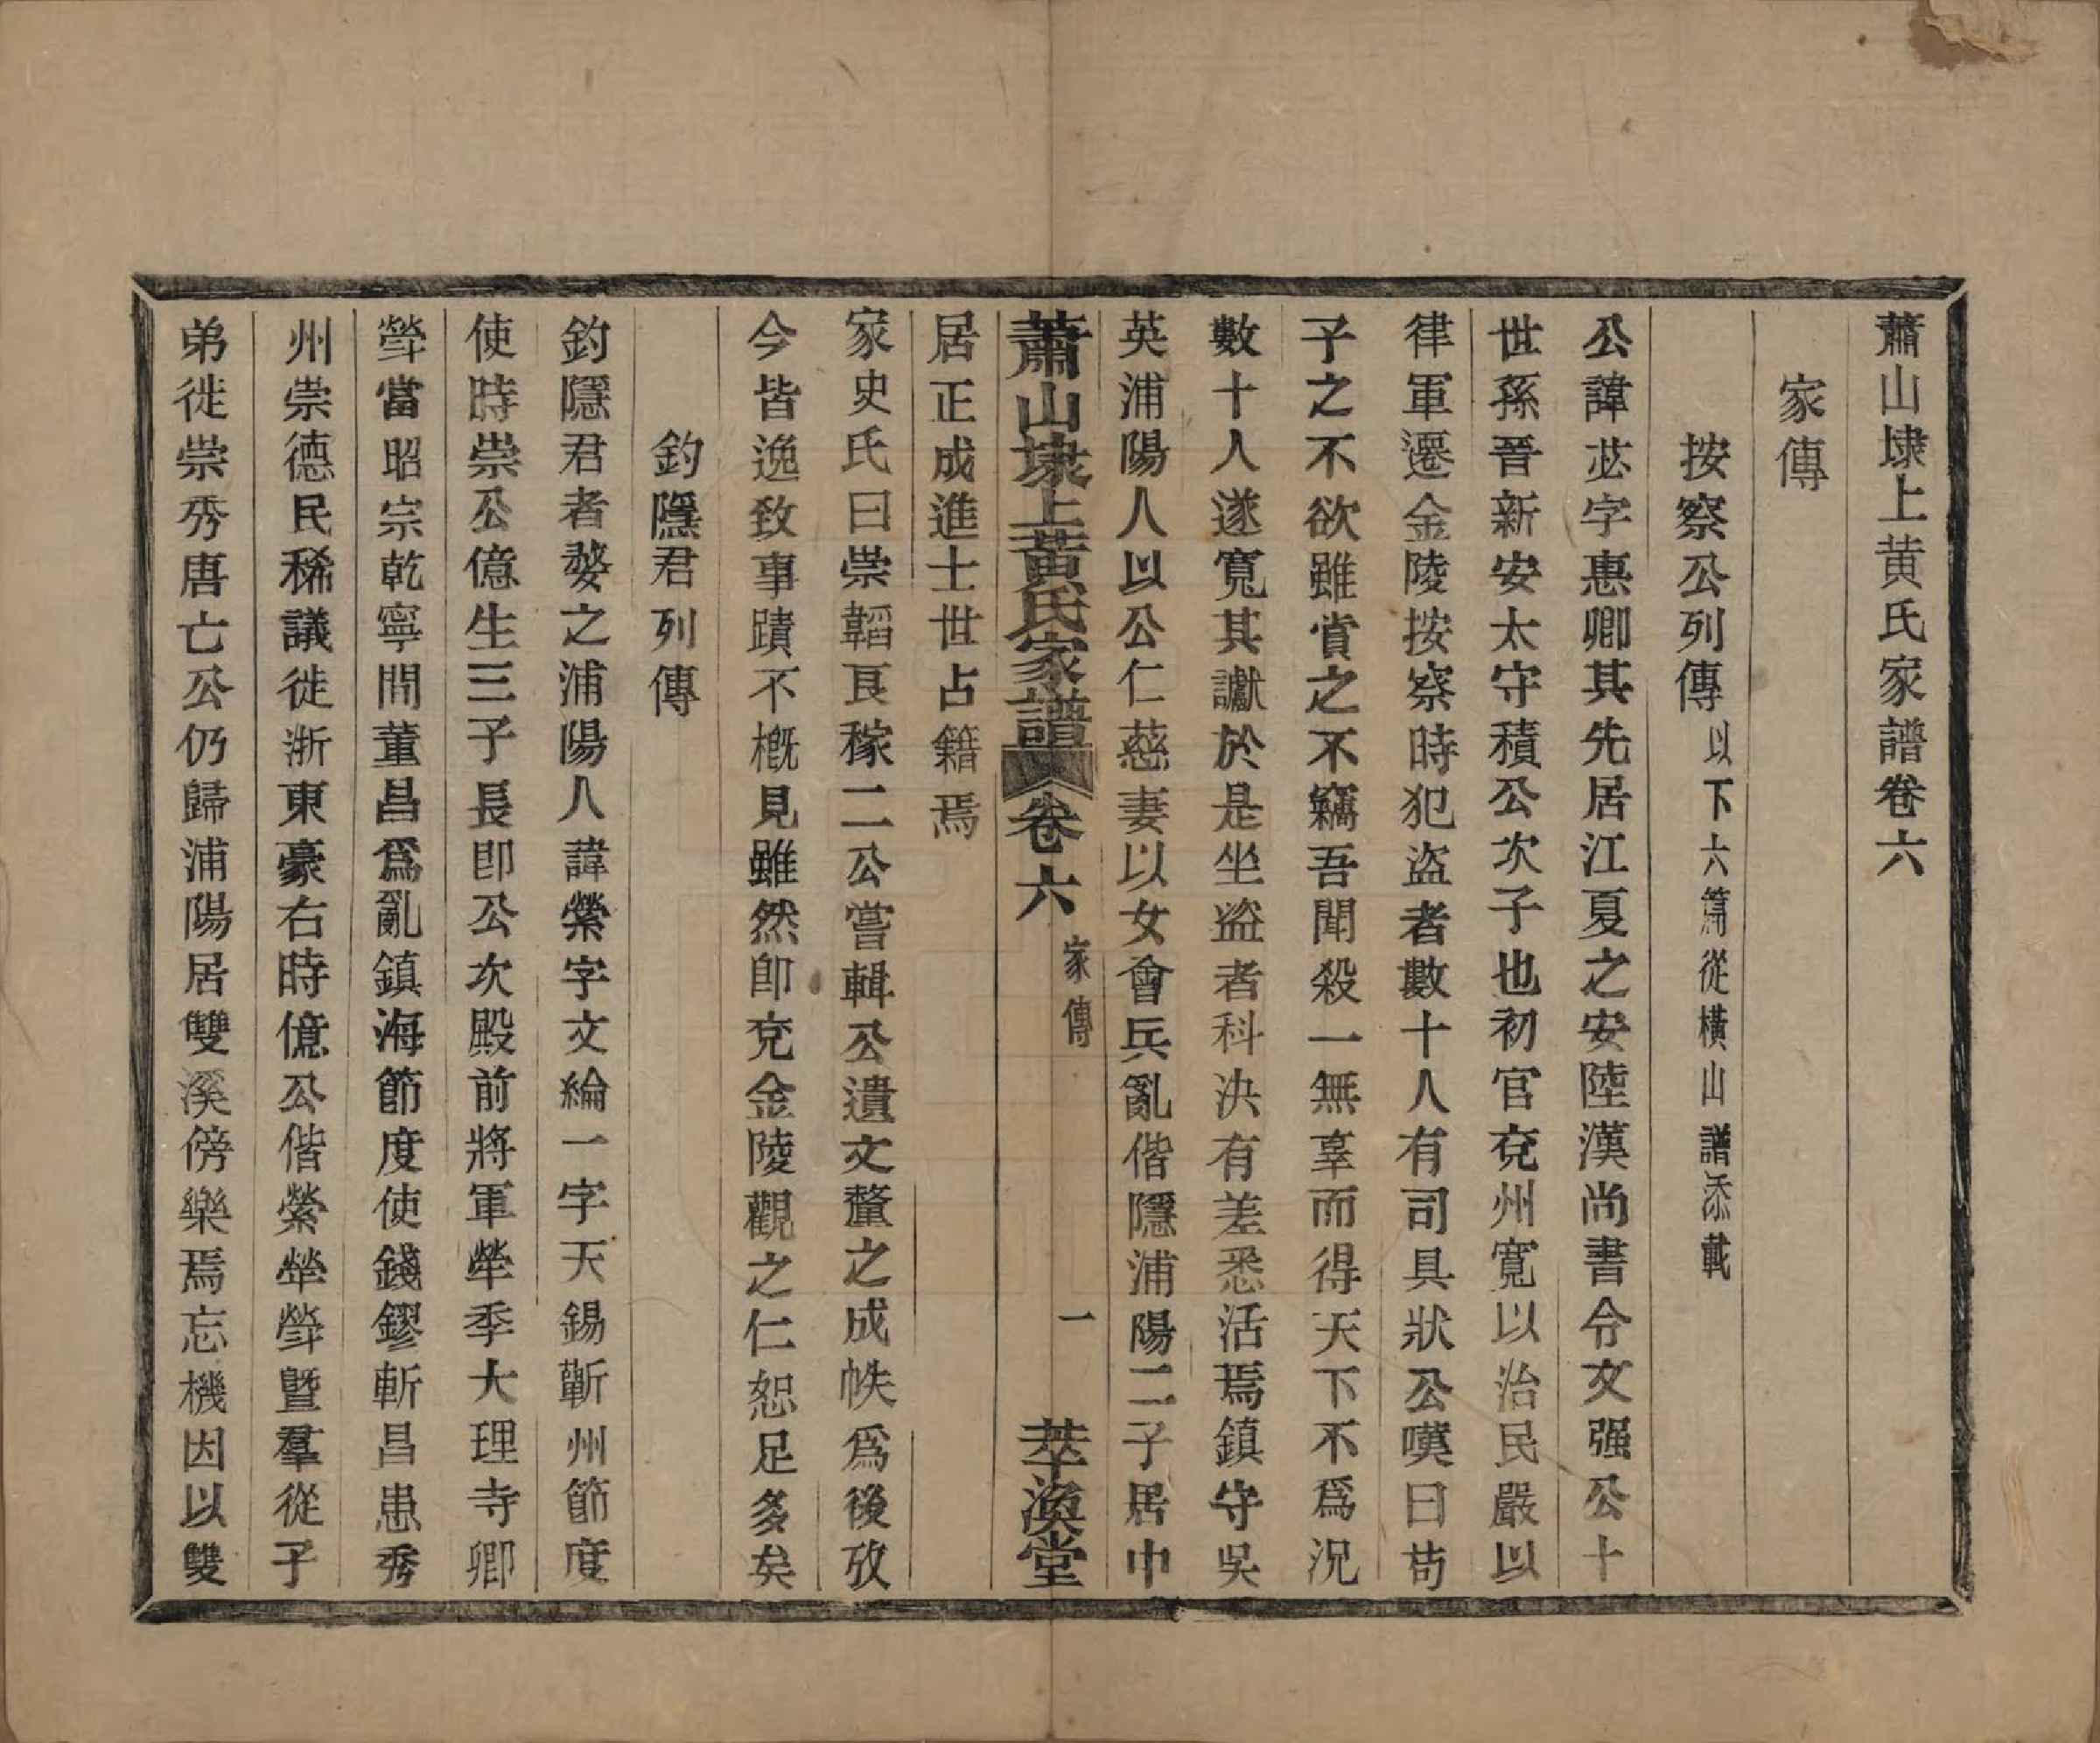 蕭山埭上黄氏家譜卷六
家傳
按察公列傳以下六篇從橫山譜添載
公諱苾字惠卿其先居江夏之安陸漢尚書令文强公十
世孫晉新安太守積公次子也初官兗州寬以治民嚴以
律軍遷金陵按察時犯盜者數十人有司具狀公嘆曰苟
子之不欲雖賞之不竊吾聞殺一無辜而得天下不爲況
數十人遂寬其讞於是坐盜者科決有差悉活焉鎮守吳
英浦陽人以公仁慈妻以女會兵亂偕隱浦陽二子居中
蕭山埭上黄氏家譜 卷六 家傳 一 萃渙堂
居正成進士世占籍焉
家史氏曰崇韜艮稼二公嘗輯公遺文釐之成帙爲後攷
今皆逸致事蹟不槪見雖然卽充金陵觀之仁恕足多矣
釣隱君列傳
釣隱君者婺之浦陽人諱縈字文綸一字天錫蘄州節度
使時崇公億生三子長卽公次殿前將軍犖季大理寺卿
㷀當昭宗乾寧間董昌爲亂鎮海節度使錢鏐斬昌患秀
州崇德民稀議徙浙東豪右時億公偕縈犖㷀曁羣從子
弟徙崇秀唐亡公仍歸浦陽居雙溪傍樂焉忘機因以雙